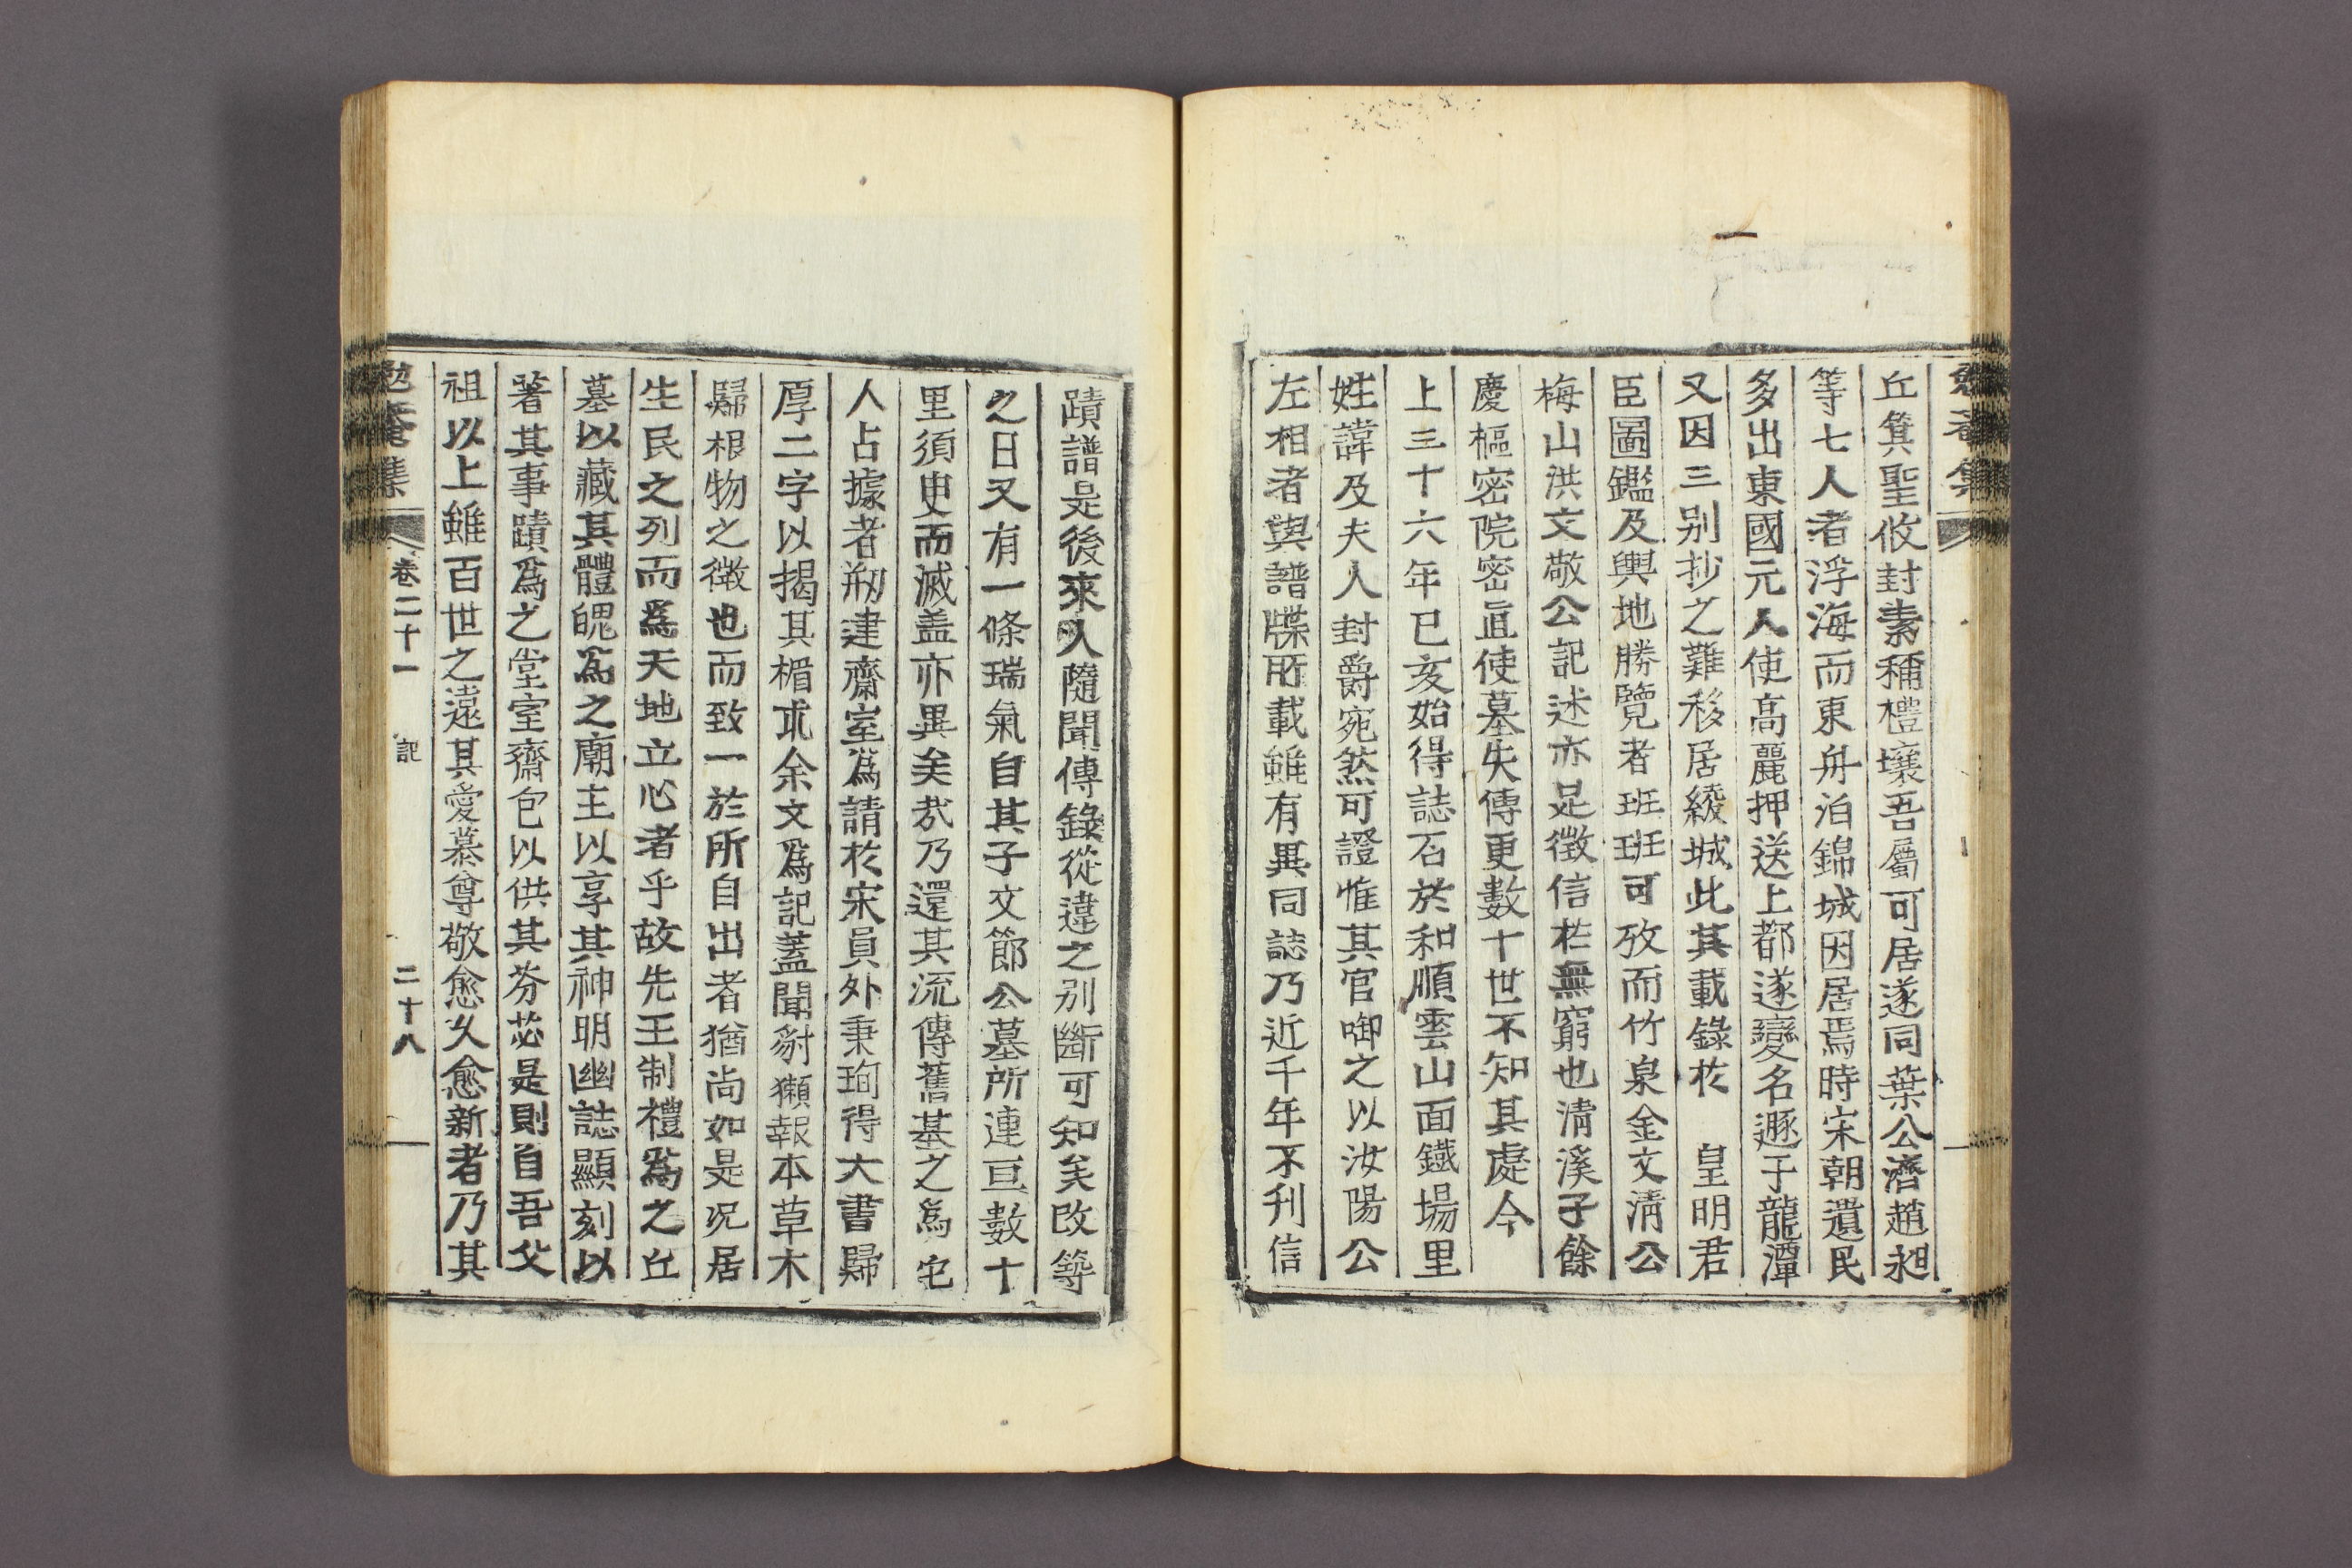 丘箕聖攸封素稱禮壤吾屬可居遂同葉公濟趙昶
等七人者浮海而東舟泊錦城因居焉時宋朝遺民
多出東國元人使高麗押送上都遂變名遯于龍潭
又因三別抄之難移居綾城此其載錄於　皇明君
臣圖鑑及輿地勝覽者班班可攷而竹泉金文淸公
梅山洪文敬公記述亦足徵信於無窮也淸溪子餘
慶樞密院密直使墓失傳更數十世不知其處今
上三十六年己亥始得誌石於和順雲山面鐵場里
姓諱及夫人封爵宛然可證惟其官啣之以汝陽公
左相者與譜牒所載雖有異同誌乃近千年不刋信
蹟譜是後來人隨聞傳錄從違之別斷可知矣改築
之日又有一條瑞氣自其子文節公墓所連亘數十
里須臾而滅盖亦異矣哉乃還其流傳舊基之爲宅
人占據者刱建齋室爲請於宋員外秉珣得大書歸
厚二字以揭其楣求余文爲記蓋聞豺獺報本草木
歸根物之微也而致一於所自出者猶尚如是况居
生民之列而爲天地立心者乎故先王制禮爲之丘
墓以藏其體魄爲之廟主以享其神明幽誌顯刻以
著其事蹟爲之堂室齋包以供其芬苾是則自吾父
祖以上雖百世之遠其愛慕尊敬愈久愈新者乃其
勉菴集　卷二十一　記　二十八